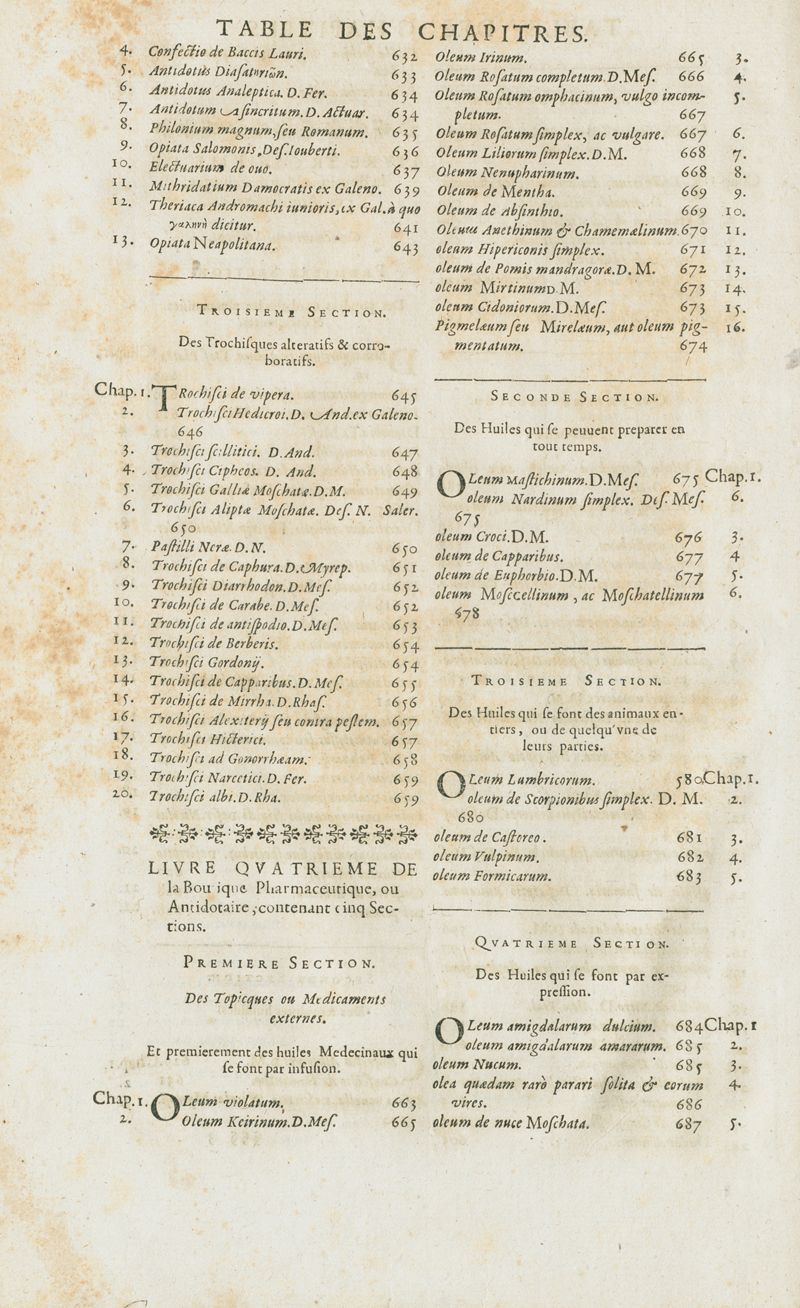 TABLE DES CHAPITRES.
4. Confectio de Baccis Lauri. 632
5. Antidotus Diasatyriôn. 633
6. Antidotus Analeptica. D. Fer. 634
7. Antidotum Asincritum. D. Actuar. 634
8. Philonium magnum, seu Romanum. 635
9. Opiata Salomonis, Des. Iouberti. 636
10. Electuarium de ouo. 637
11. Mithridatium Damocratis ex Galeno. 639
12. Theriaca Andromachi iunioris, ex Gal. à quo
γαληνὴ dicitur. 641
13. Opiata Neapolitana. 643
TROISIEME SECTION.
Des Trochisques alteratifs & corro-
boratifs.
Chap. 1. TRochisci de vipera. 645
2. Trochisci Hedicroi. D. And. ex Galeno.
646
3. Trochisci scillitici. D. And. 647
4. Trochisci Cipheos. D. And. 648
5. Trochisci Galliæ Moschatæ. D. M. 649
6. Trochisci Aliptæ Moschatæ. Des. N. Saler.
650
7. Pastilli Neræ. D. N. 650
8. Trochisci de Caphura. D. Myrep. 651
9. Trochisci Diarrhodon. D. Mes. 652
10. Trochisci de Carabe. D. Mes. 652
11. Trochisci de antispodio. D. Mes. 653
12. Trochisci de Berberis. 654
13. Trochisci Gordonij. 654
14. Trochisci de Capparibus. D. Mes. 655
15. Trochisci de Mirrha. D. Rhas. 656
16. Trochisci Alexiterij seu contra pestem. 657
17. Trochisci Histerici. 657
18. Trochisci ad Gonorrhæam. 658
19. Trochisci Narcotici. D. Fer. 659
20. Trochisci albi. D. Rha. 659
LIVRE QVATRIEME DE
la Bou ique Pharmaceutique, ou
Antidotaire, contenant cinq Sec-
tions.
PREMIERE SECTION.
Des Topicques ou Medicaments
externes.
Et premierement des huiles Medecinaux qui
se font par infusion.
Chap. 1. OLeum violatum. 663
2. Oleum Keirinum. D. Mes. 665
Oleum Irinum. 665 3.
Oleum Rosatum completum. D. Mes. 666 4.
Oleum Rosatum omphacinum, vulgo incom- 5.
pletum. 667
Oleum Rosatum simplex, ac vulgare. 667 6.
Oleum Liliorum simplex. D. M. 668 7.
Oleum Nenupharinum. 668 8.
Oleum de Mentha. 669 9.
Oleum de Absinthio. 669 10.
Oleum Anethinum & Chamemælinum. 670 11.
oleum Hipericonis simplex. 671 12.
oleum de Pomis mandragoræ. D. M. 672 13.
oleum Mirtinum D. M. 673 14.
oleum Cidoniorum. D. Mes. 673 15.
Pigmelæum seu Mirelæum, aut oleum pig- 16.
mentatum. 674
SECONDE SECTION.
Des Huiles qui se peuuent preparer en
tout temps.
OLeum Mastichinum. D. Mes. 675 Chap. 1.
oleum Nardinum simplex. Des. Mes. 6.
675
oleum Croci. D. M. 676 3.
oleum de Capparibus. 677 4
oleum de Euphorbio. D. M. 677 5.
oleum Moscellinum, ac Moschatellinum 6.
678
TROISIEME SECTION.
Des Huiles qui se font des animaux en-
tiers, ou de quelqu'vne de
leurs parties.
OLeum Lumbricorum. 580 Chap. 1.
oleum de Scorpionibus simplex. D. M. 2.
680
oleum de Castoreo. 681 3.
oleum Vulpinum. 682 4.
oleum Formicarum. 683 5.
QVATRIEME SECTION.
Des Huiles qui se font par ex-
pression.
OLeum amigdalarum dulcium. 684 Chap. 1
oleum amigdalarum amararum. 685 2.
oleum Nucum. 685 3.
olea quædam rarò parari solita & eorum 4.
vires. 686
oleum de nuce Moschata. 687 5.